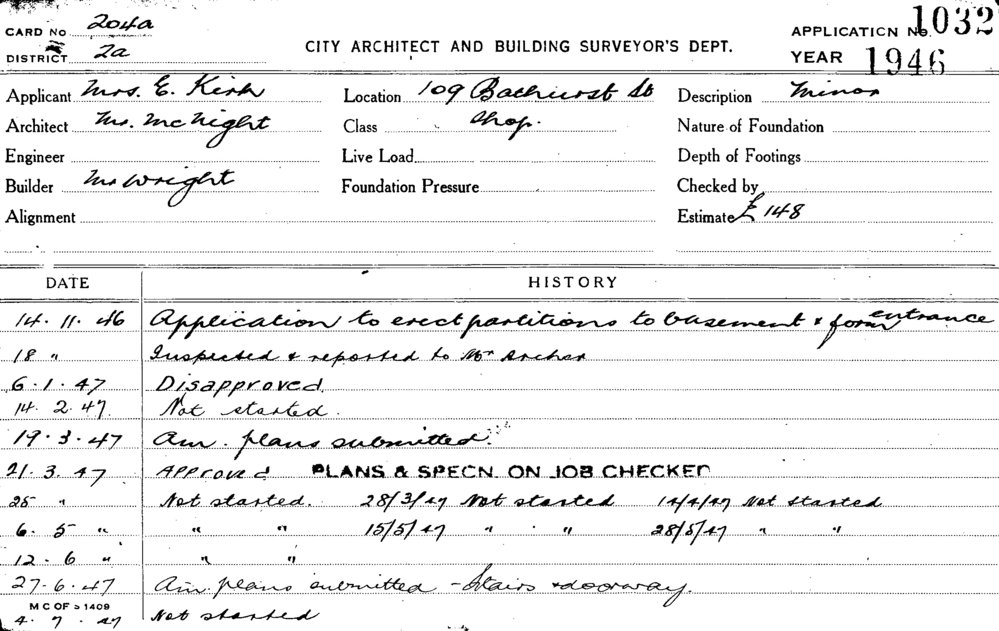 CARD No 204a
DISTRICT 2a
CITY ARCHITECT AND BUILDING SURVEYOR'S DEPT.
APPLICATION No. 1032
YEAR 1946
Applicant Mrs. E. Kirk Location 109 Bathurst St Description Minor
Architect Mr. McNight Class Shop. Nature of Foundation
Engineer Live Load Depth of Footings
Builder Mr Wright Foundation Pressure Checked by
Alignment Estimate £148
DATE HISTORY
14. 11. 46 Application to erect partitions to basement & form entrance
18 " Inspected & reported to Mr Archer
6. 1. 47 Disapproved
14. 2. 47. Not started.
19. 3. 47 Am. plans submitted.
21. 3. 47 Approved PLANS & SPECN. ON JOB CHECKED
25 " Not started. 28/3/47 Not started 14/4/47 Not started
6. 5 " " " 15/5/47 " " 28/5/47 " "
12. 6 " " "
27. 6. 47 Am. plans submitted - Stairs & doorway.
M C OF S 1409
4. 7. 47 Not started